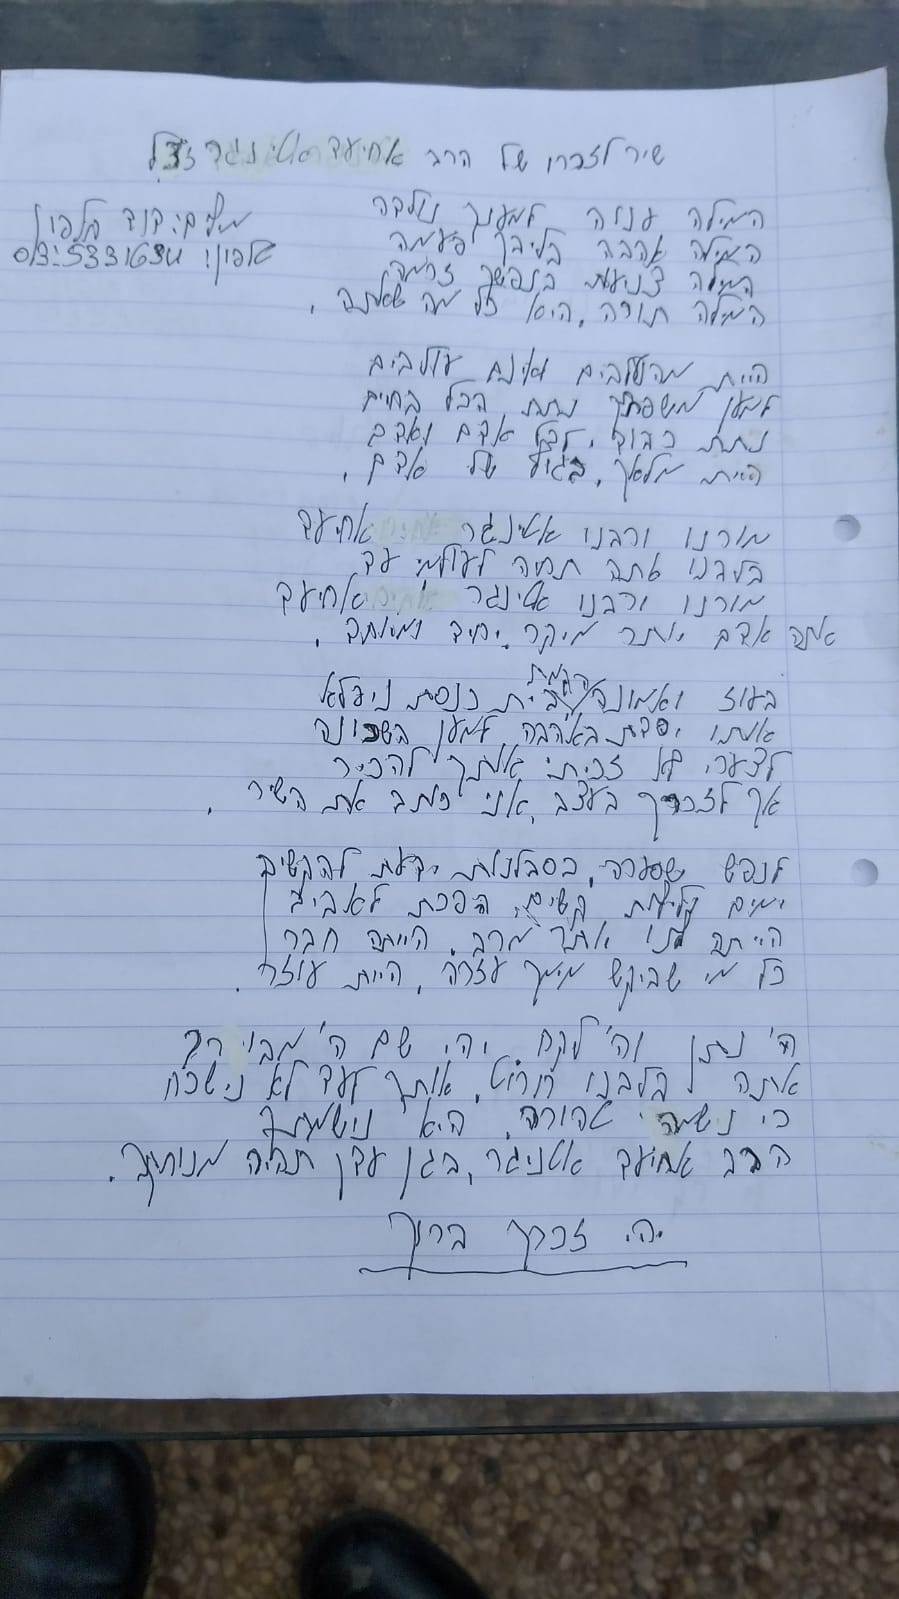 שיר לזכרו של הרב אחיעד אטינגר זצ״ל
מילים: דוד חלפון
טלפון: 03-5331634
המילה ענווה למענך נולדה
המילה אהבה בליבך פעמה
המילה צניעות בנפשך זרמה
המילה תורה, היא כל מה שאתה.
היית מהנעלבים ואינם עולבים
למען משפחתך נתת הכל בחיים
נתת כבוד, לכל אדם ואדם
היית מלאך, בגוף של אדם.
מורנו ורבנו אטינגר אחיעד
בלבנו אתה תחיה לעולמי עד
מורנו ורבנו אטינגר אחיעד
אתה אדם יותר מיקר, יחיד ומיוחד.
בעוז ואמונה הקמת בית כנסת ניפלא
אותו יסדת באהבה למען השכונה
לצערי לא זכיתי אותך להכיר
אך לזכרך בעצב, אני כותב את השיר.
לנפש שסערה, בסבלנות ידעת להקשיב
ימים קשים, הפכת לאביב
הייתה לנו יותר מרב, הייתה חבר
כל מי שביקש ממך עזרה, היית עוזר.
ה׳ נתן וה׳ לקח. יהי שם ה׳ מבורך
אתה בלבנו חרוט, אותך לעד לא נישכח
כי נישמה טהורה, היא נישמתך
הרב אחיעד אטניגר, בגן עדן תהיה מנוחתך.
יהי זכרך ברוך